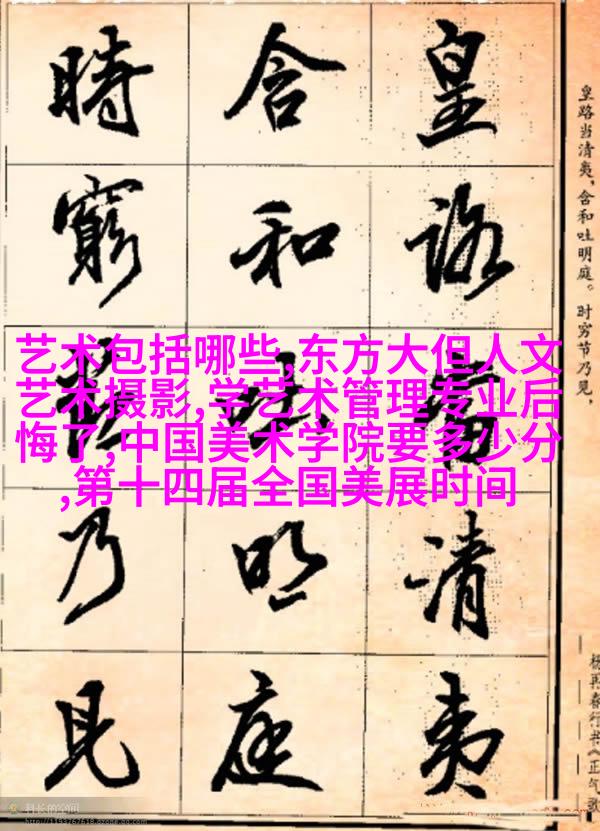 皇路當清夷
含和吐明庭
時窮節乃見
皇路当清夷,含和吐明庭。时穷节乃见,
杨再春行书《正气歌
艺术包括哪些,东方大但人文
艺术摄影,学艺术管理专业后
悔了,中国美术学院要多少分
,第十四届全国美展时间
科长的空间